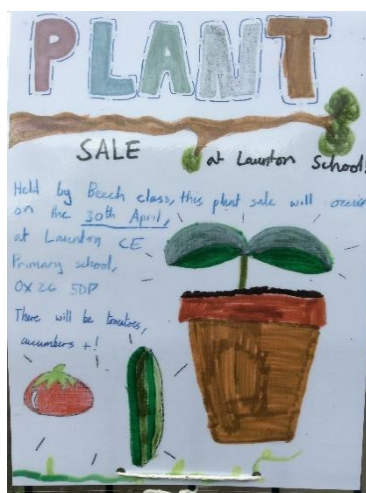 PLANT
SALE
at Launton School!
Held by Beech class, this plant sale will occur
on the 30th April,
at Launton CE
Primary school,
OX26 5DP
There will be tomatoes,
cucumbers +!